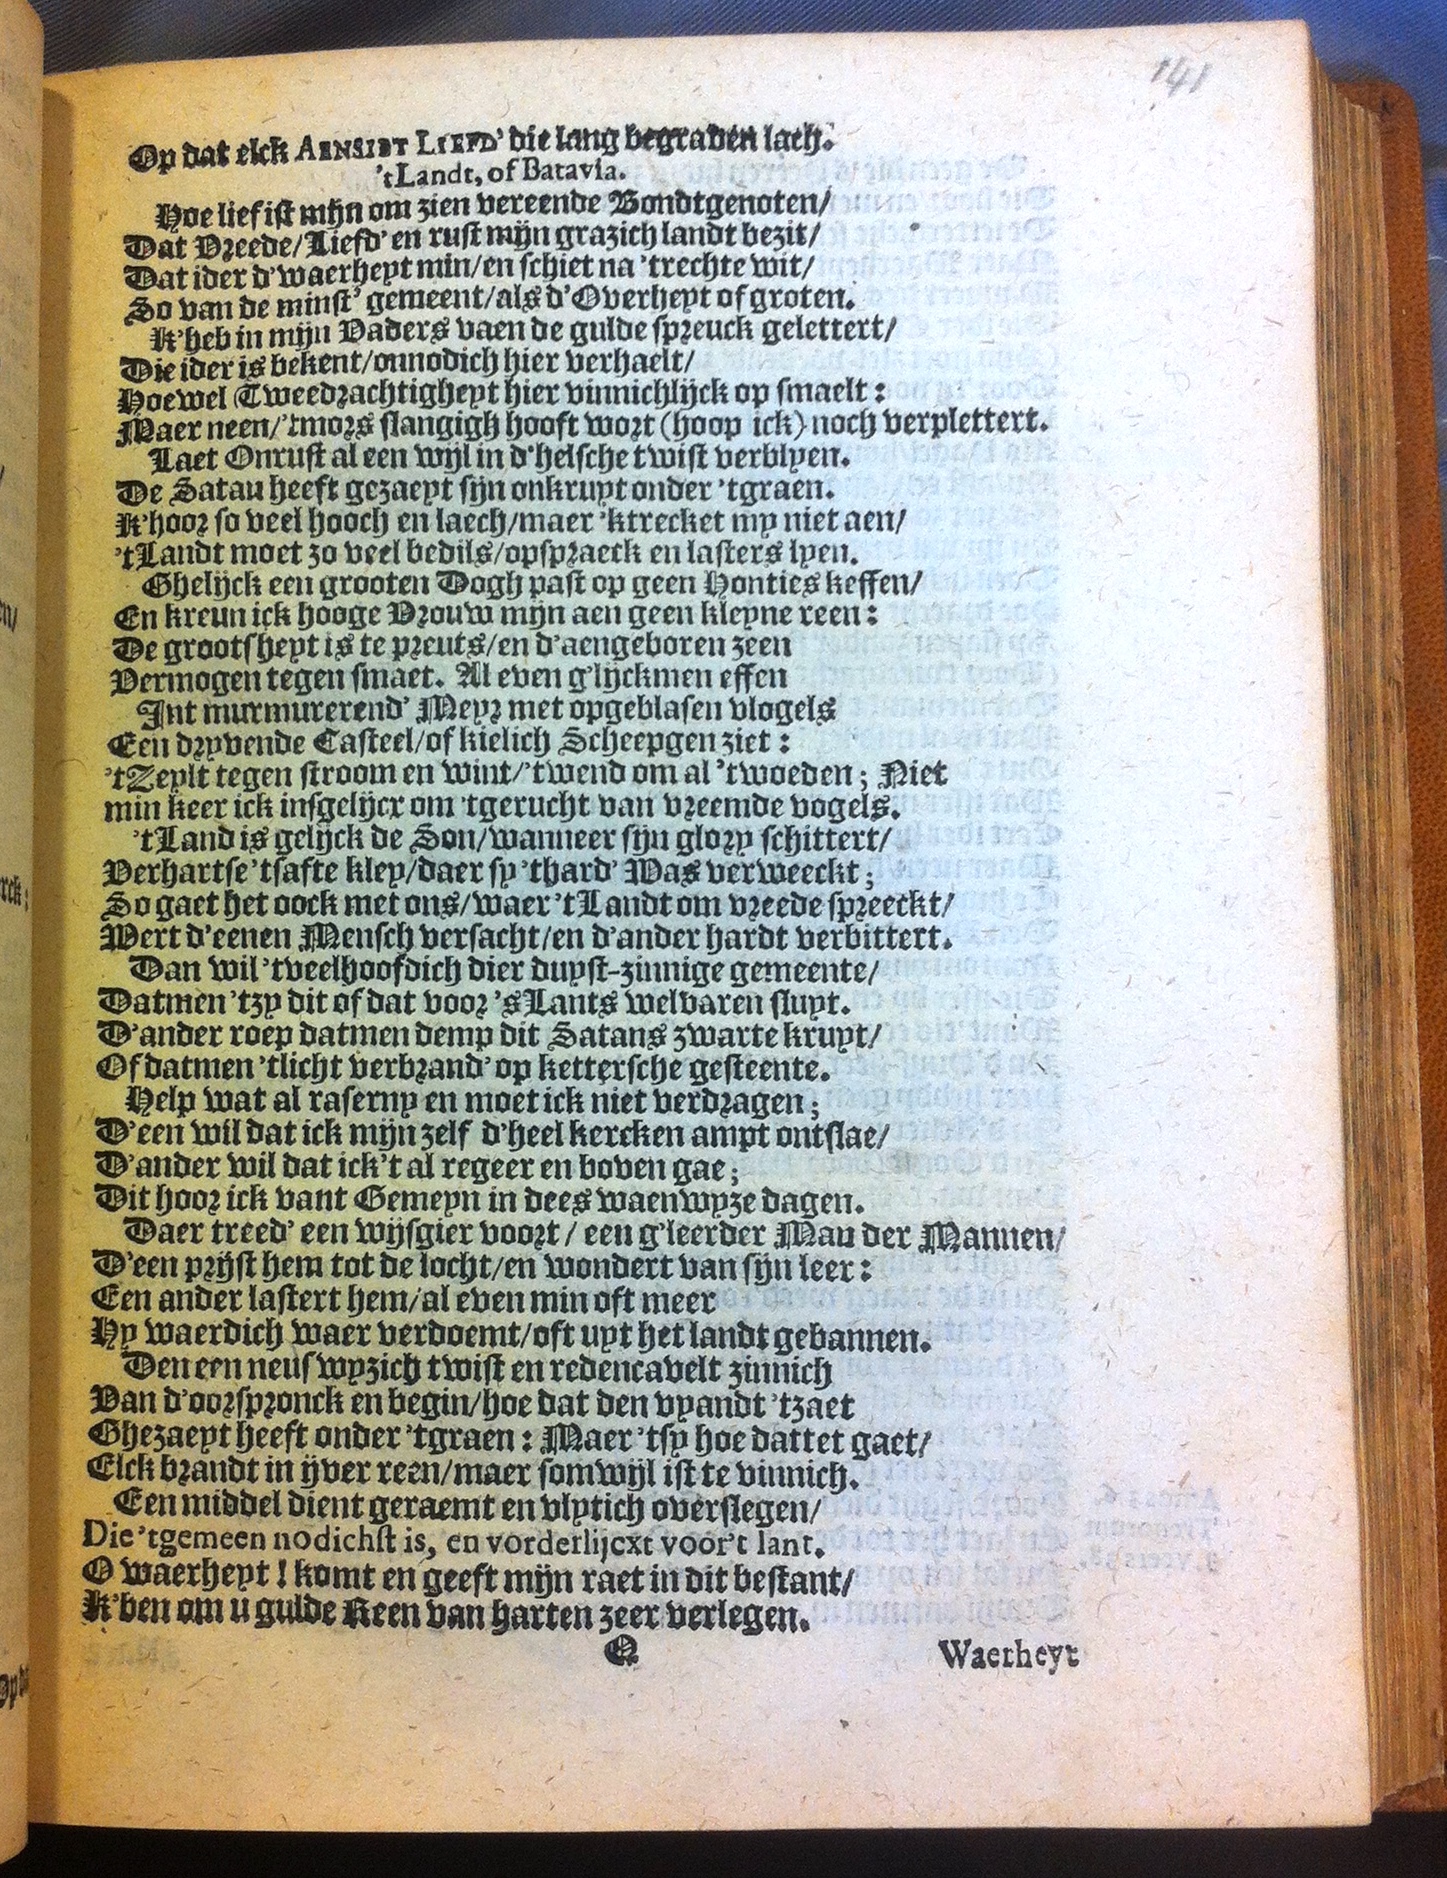 141
Op dat elck AENSIET LIEFD' die lang begraven lach.
't Landt, of Batavia.
Hoe lief ist mijn om zien vereende Bondtgenoten/
Dat Vreede/Liefd' en rust mijn grazich landt bezit/
Dat ider d'waerheyt min/en schiet na 'trechte wit/
So van de minst' gemeent/als d'Overheyt of groten.
K'heb in mijn Vaders vaen de gulde spreuck gelettert/
Die ider is bekent/onnodich hier verhaelt/
Hoewel Tweedrachtigheyt hier vinnichlijck op smaelt:
Maer neen/'tmors slangigh hooft wort (hoop ick) noch verplettert.
Laet Onrust al een wijl in d'helsche twist verblyen.
De Satau heeft gezaeyt sijn onkruyt onder 'tgraen.
K'hoor so veel hooch en laech/maer 'ktrecket my niet aen/
't Landt moet zo veel bedils/opspraeck en lasters lyen.
Ghelijck een grooten Dogh past op geen Honties keffen/
En kreun ick hooge Vrouw mijn aen geen kleyne reen:
De grootsheyt is te preuts/en d'aengeboren zeen
Vermogen tegen smaet. Al even g'lijckmen effen
Int murmurerend' Meyr met opgeblasen vlogels
Een dryvende Casteel/of kielich Scheepgen ziet:
't Zeylt tegen stroom en wint/'twend om al 'twoeden; Niet
min keer ick insgelijcx om 'tgerucht van vreemde vogels.
't Land is gelijck de Son/wanneer sijn glory schittert/
Verhartse 'tsafte kley/daer sy 'thard' Was verweeckt;
So gaet het oock met ons/waer 't Landt om vreede spreeckt/
Wert d'eenen Mensch versacht/en d'ander hardt verbittert.
Dan wil 'tveelhoofdich dier duyst-zinnige gemeente/
Datmen 'tzy dit of dat voor 's Lants welvaren sluyt.
D'ander roep datmen demp dit Satans zwarte kruyt/
Of datmen 'tlicht verbrand' op kettersche gesteente.
Help wat al raserny en moet ick niet verdragen;
D'een wil dat ick mijn zelf d'heel kercken ampt ontslae/
D'ander wil dat ick't al regeer en boven gae;
Dit hoor ick vant Gemeyn in dees waenwyze dagen.
Daer treed' een wijsgier voort / een g'leerder Man der Mannen/
D'een prijst hem tot de locht/en wondert van sijn leer:
Een ander lastert hem/al even min oft meer
Hy waerdich waer verdoemt/oft uyt het landt gebannen.
Den een neuswyzich twist en redencavelt zinnich
Van d'oorspronck en begin/hoe dat den vyandt 'tzaet
Ghezaeyt heeft onder 'tgraen: Maer 'tsy hoe dattet gaet/
Elck brandt in ijver reen/maer somwijl ist te vinnich.
Een middel dient geraemt en vlytich overslegen/
Die 'tgemeen nodichst is, en vorderlijcxt voor't lant.
O waerheyt! komt en geeft mijn raet in dit bestant/
K'ben om u gulde Reen van harten zeer verlegen.
Q
Waerheyt